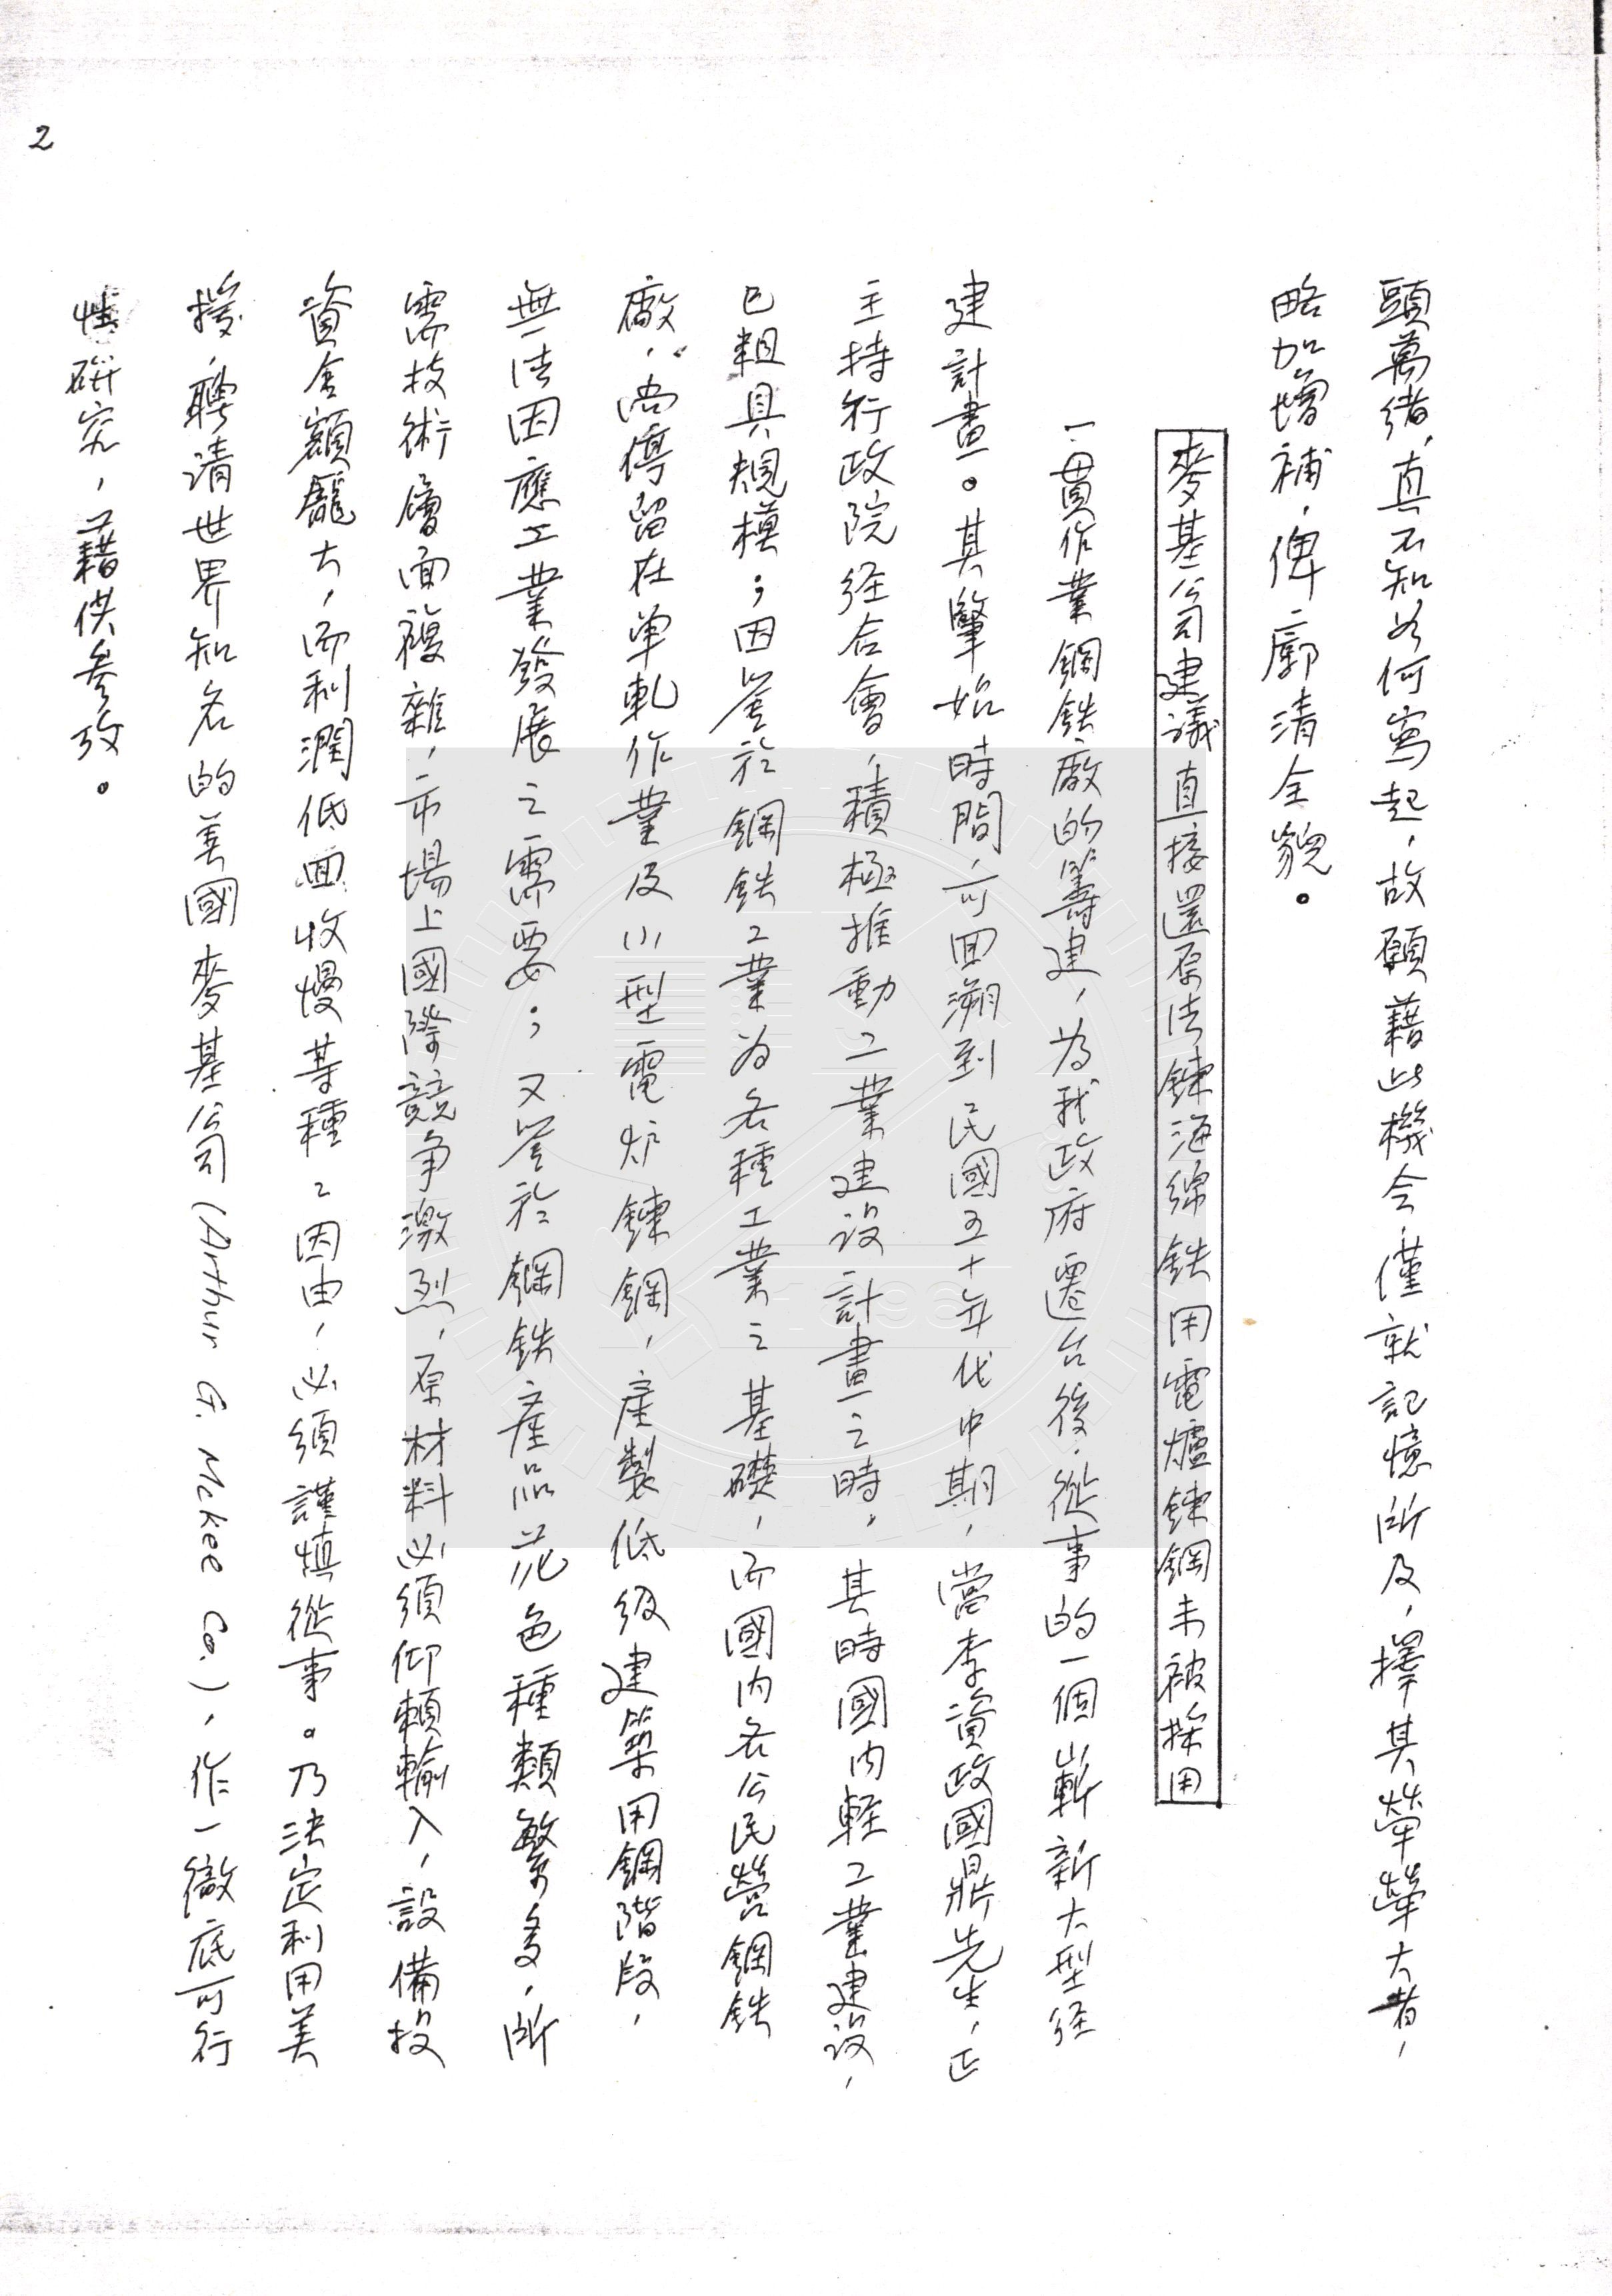 頭萬緒，真不知如何寫起，故願藉此機會，僅就記憶所及，擇其犖犖大者，
略加增補，俾廓清全貌。
麥基公司建議直接還原法鍊海綿鉄用電爐鍊鋼未被採用
一貫作業鋼鉄廠的籌建，為我政府遷台後，從事的一個嶄新大型経
建計畫。其肇始時間，可回溯到民國五十年代中期，當李資政國鼎先生，正
主持行政院経合會，積極推動工業建設計畫之時。其時國内軽工業建設，
已粗具規模；因鉴於鋼鉄工業为各種工業之基礎，而國内各公民營鋼鉄
廠，尚停留在単軋作業及小型電炉鍊鋼，產製低级建築用鋼階段，
無法因應工業發展之需要；又鉴於鋼鉄產品花色種類繁多，所
需技術層面複雜，市場上國際競争激烈，原材料必須仰賴輸入，設備投
資金額龐大，而利潤低回收慢等種種因由，必須謹慎從事。乃決定利用美
援，聘請世界知名的美國麥基公司(Arthur G. McKee Co.)，作一徹底可行
性研究，藉供參攷。
2
1896